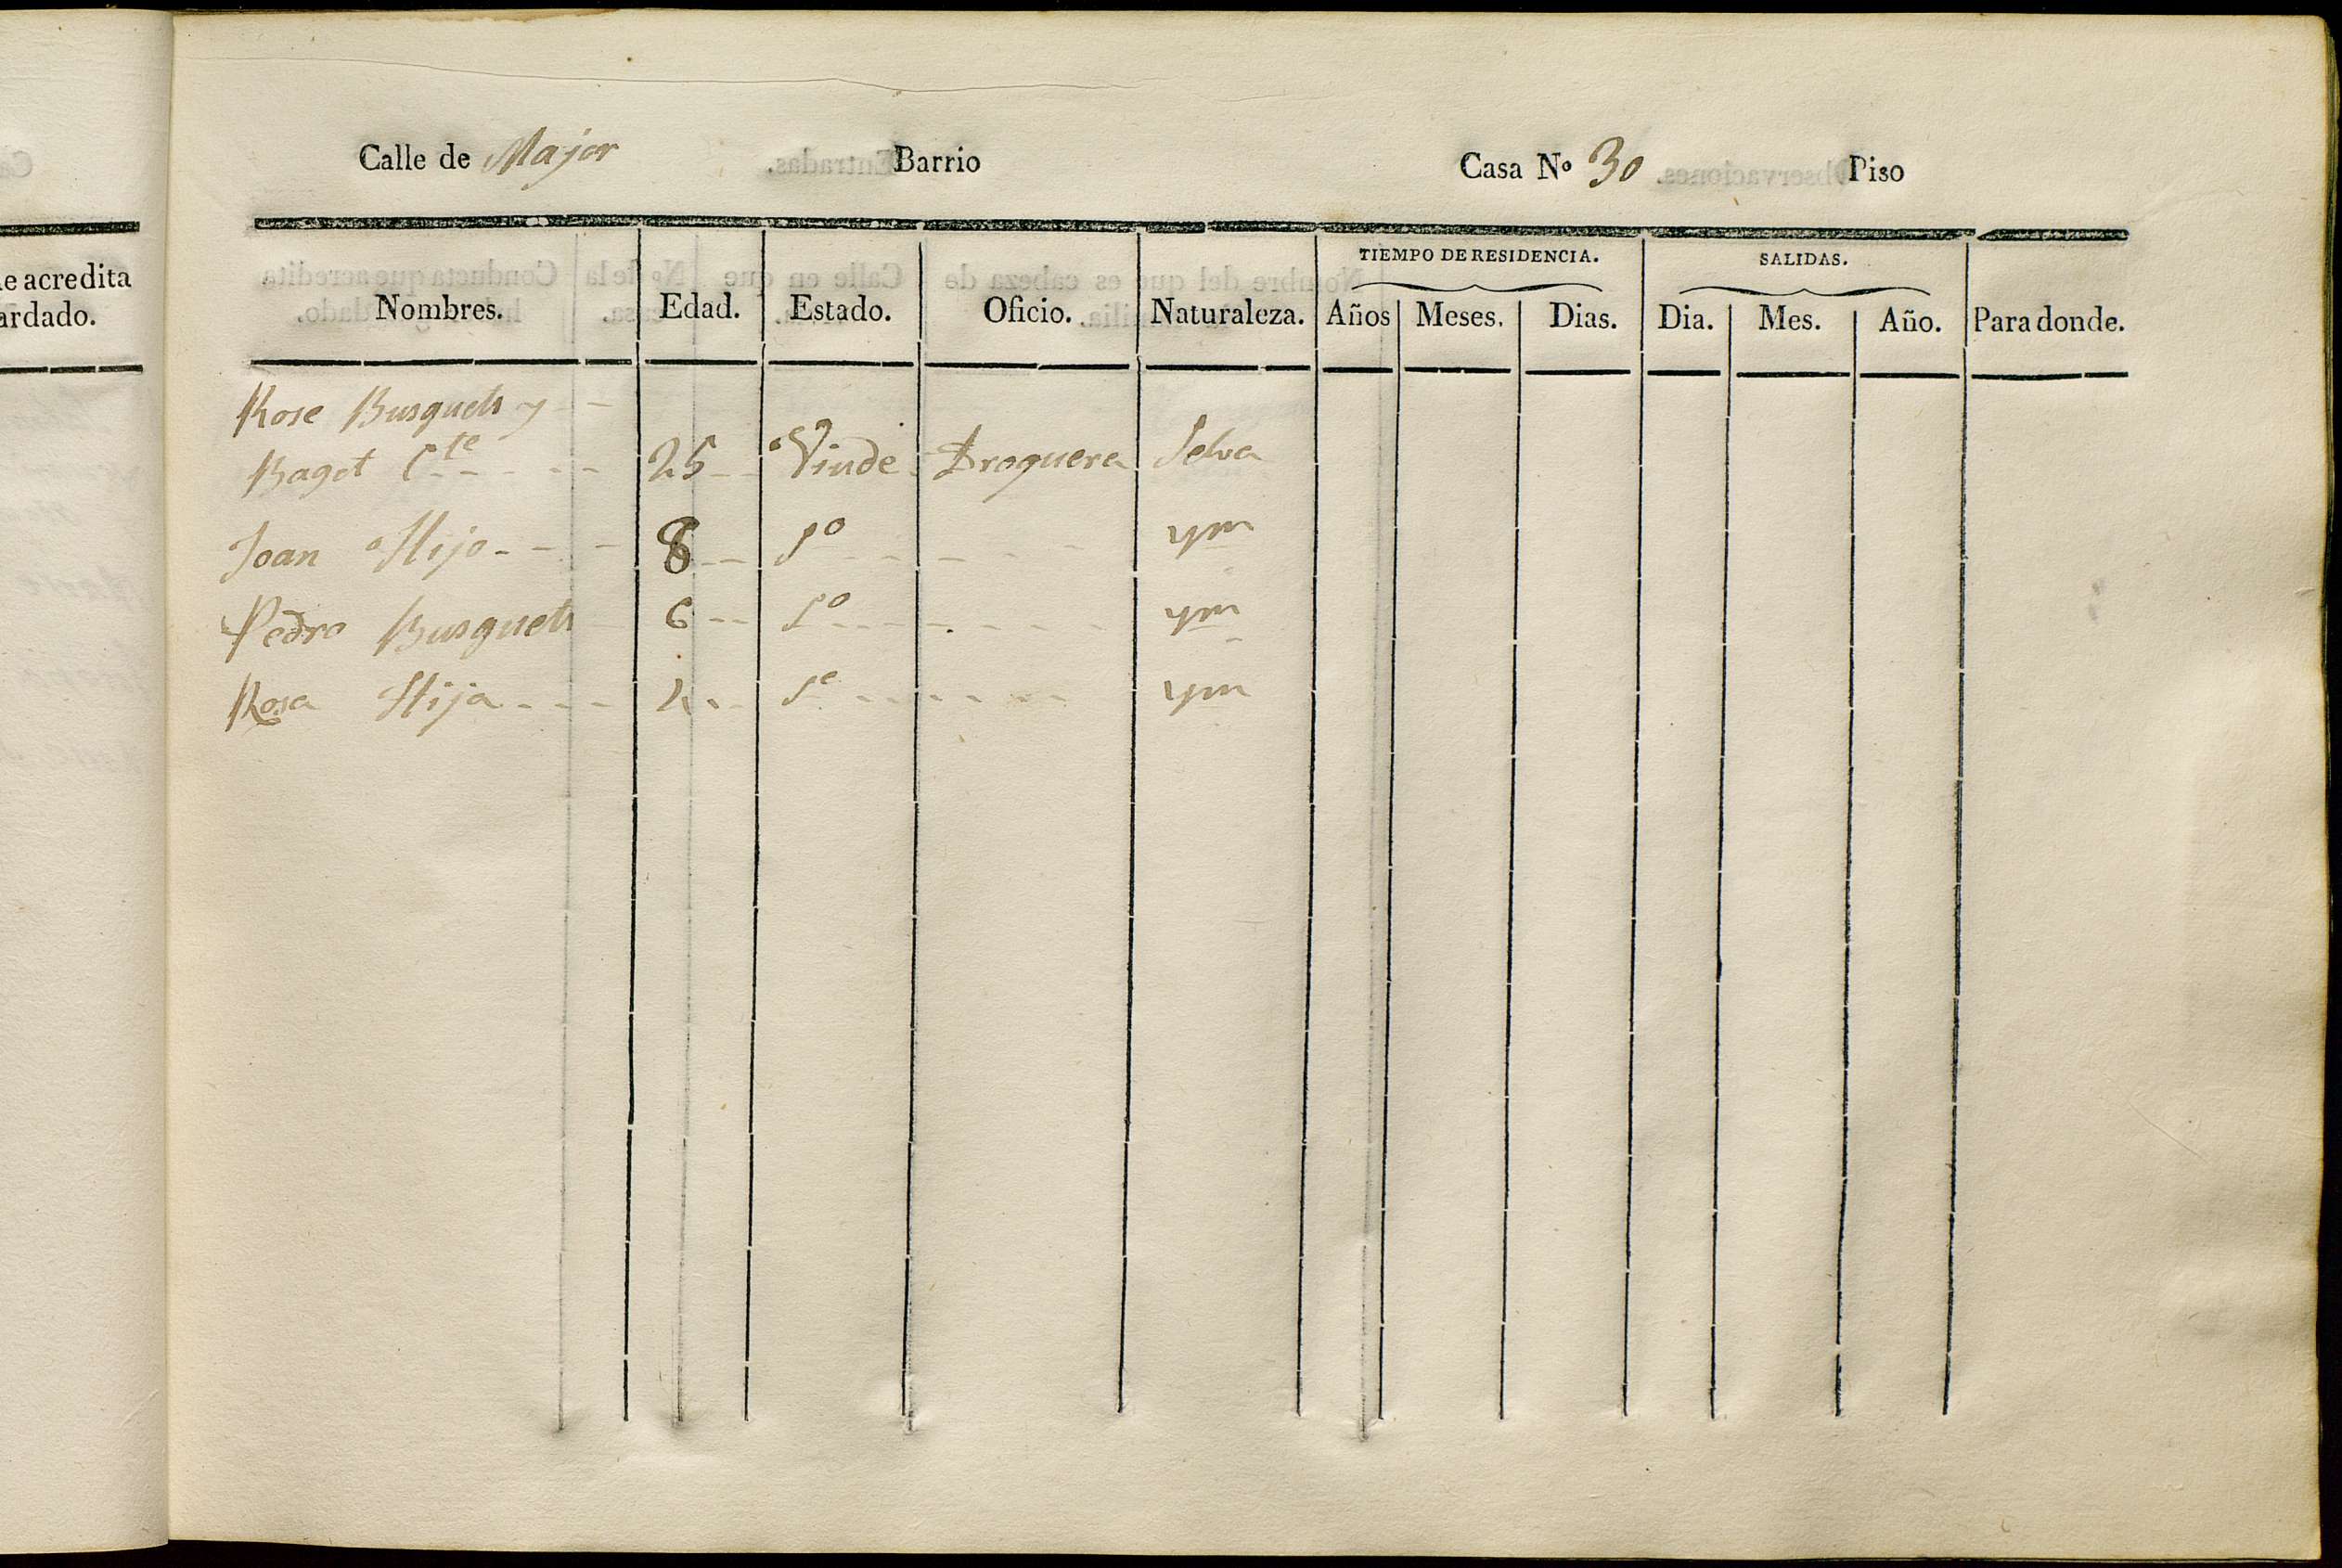 e acredita
ardado.
Calle de Major Barrio Casa Nº 30 Piso
TIEMPO DE RESIDENCIA. SALIDAS.
Nombres. Edad. Estado. Oficio. Naturaleza. Años Meses. Dias. Dia. Mes. Año. Para donde.
Rose Busquets y
Baget 25 Viude Droguera Selva
Joan Hijo 8 So ym
Pedro Busquets 6 So ym
Rosa Hija Se ym